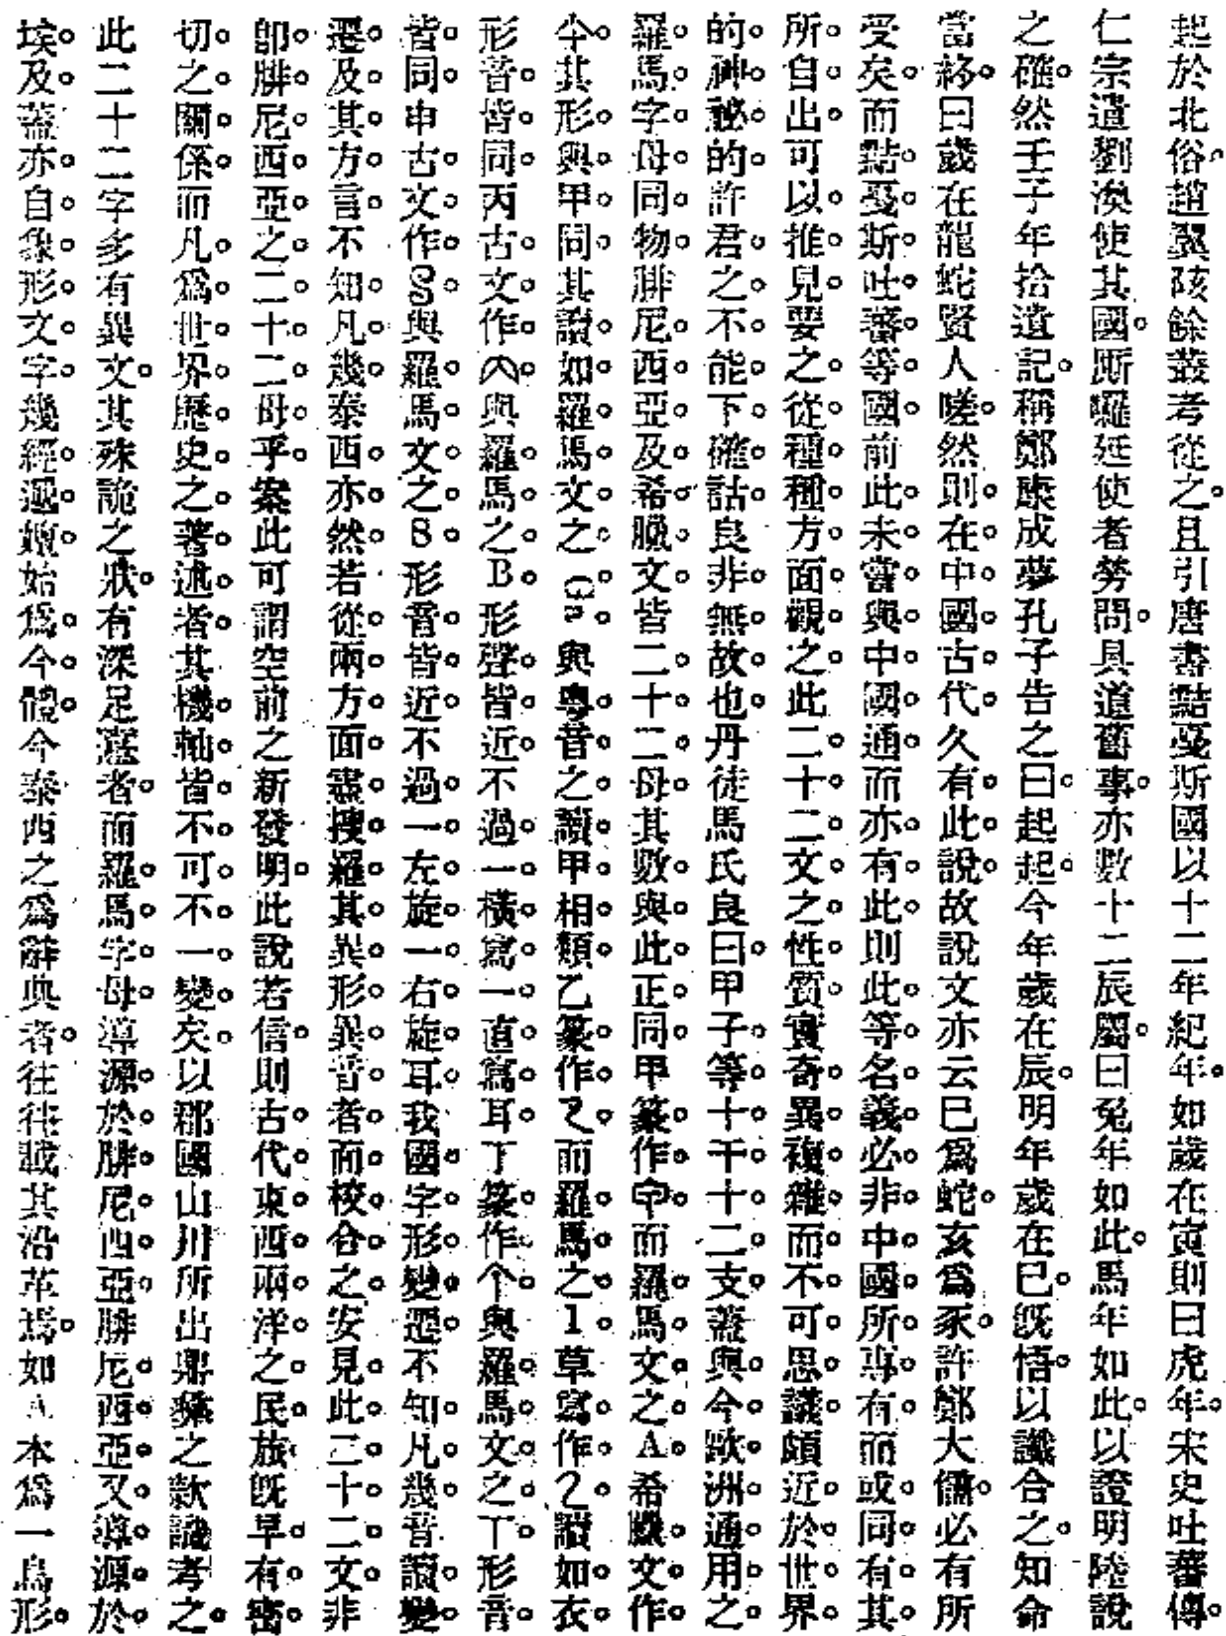 起於北俗。趙翼陔餘叢考從之。且引唐書黠戛斯國以十二年紀年。如歲在寅則曰虎年。宋史吐蕃傳。
仁宗遣劉渙使其國。廝囉延使者勞問。具道舊事。亦數十二辰屬。曰兔年如此。馬年如此。以證明陸說
之確。然壬子年拾遺記。稱鄭康成夢孔子告之曰。起起。今年歲在辰。明年歲在巳。旣悟。以讖合之。知命
當終。曰歲在龍蛇賢人嗟。然則在中國古代久有此說。故說文亦云巳爲蛇。亥爲豕。許鄭大儒。必有所
受矣。而黠戛斯吐蕃等國前此未嘗與中國通。而亦有此。則此等名義必非中國所專有。而或同有其
所自出。可以推見。要之從種種方面觀之。此二十二文之性質實奇異複雜而不可思議。頗近於世界
的神祕的。許君之不能下確詁。良非無故也。丹徒馬氏良曰。甲子等十干十二支。蓋與今歐洲通用之
羅馬字母同物。腓尼西亞及希臘文皆二十二母。其數與此正同。甲篆作𠇚而羅馬文之A。希臘文作
今其形與甲同。其讀如羅馬文之Ga與粵音之讀甲相類。乙篆作乙。而羅馬之1草寫作乙。讀如衣
形音皆同。丙古文作𠔼。與羅馬之B形聲皆近。不過一橫寫一直寫耳。丁篆作个。與羅馬文之丅形音
皆同。申古文作S與羅馬文之S形音皆近。不過一左旋一右旋耳。我國字形變遷不知凡幾。音讀變
遷及其方言不知凡幾。泰西亦然。若從兩方面盡搜羅其異形異音者而校合之。安見此二十二文非
卽腓尼西亞之二十二母乎。案此可謂空前之新發明。此說若信。則古代東西兩洋之民族旣早有密
切之關係。而凡爲世界歷史之著述者。其機軸皆不可不一變矣。以郡國山川所出鼎彝之款識考之。
此二十二字多有異文。其殊詭之狀。有深足憙者。而羅馬字母導源於腓尼西亞。腓尼西亞又導源於
埃及。蓋亦自象形文字幾經遞嬗。始爲今體。今泰西之爲辭典者。往往載其沿革焉。如A本爲一鳥形。